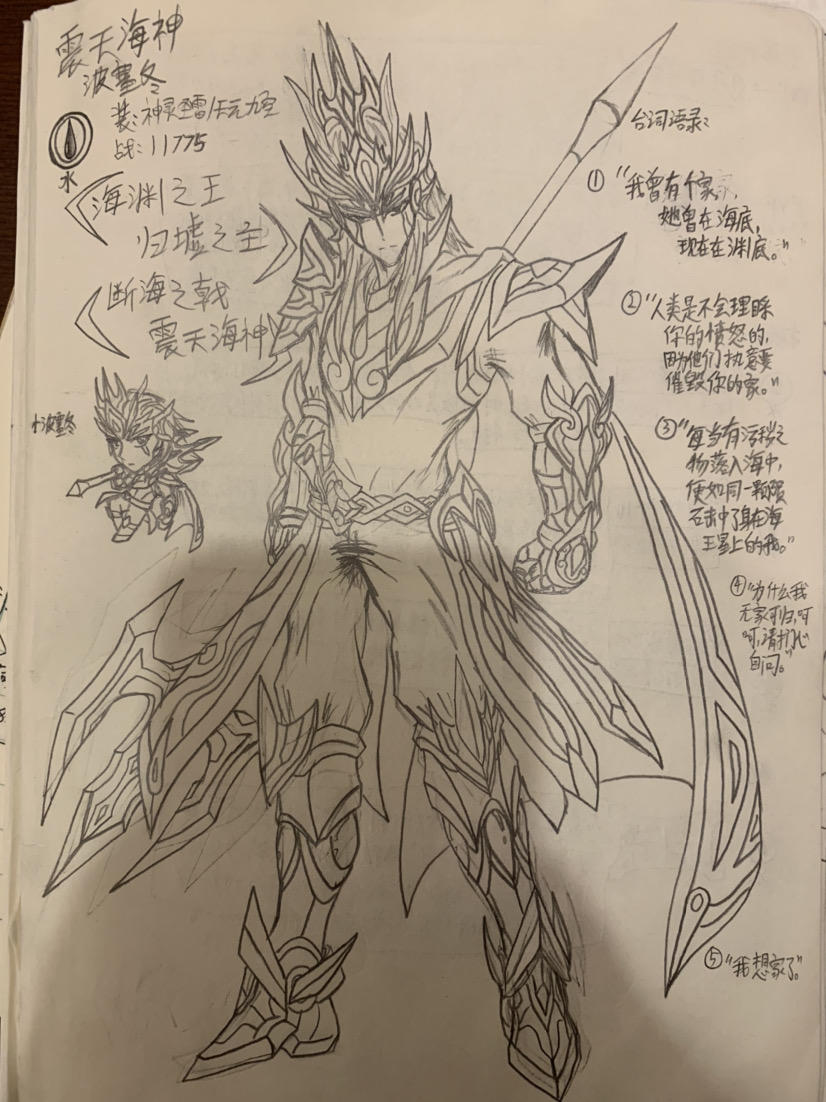 震天海神
波塞冬
装:神灵圣雷/天元九圣
战:11775
水
海渊之王
归墟之主
断海之戟
震天海神
小波塞冬
台词语录:
① “我曾有个家,
她曾在海底,
现在在渊底。”
② “人类是不会理睬
你的愤怒的,
因为他们执意要
催毁你的家。”
③ “每当有污秽之
物落入海中,
便如同一颗陨
石击中了身在海
王星上的我。”
④ “为什么我
无家可归,呵
呵,请扪心
自问。”
⑤ “我想家了。”